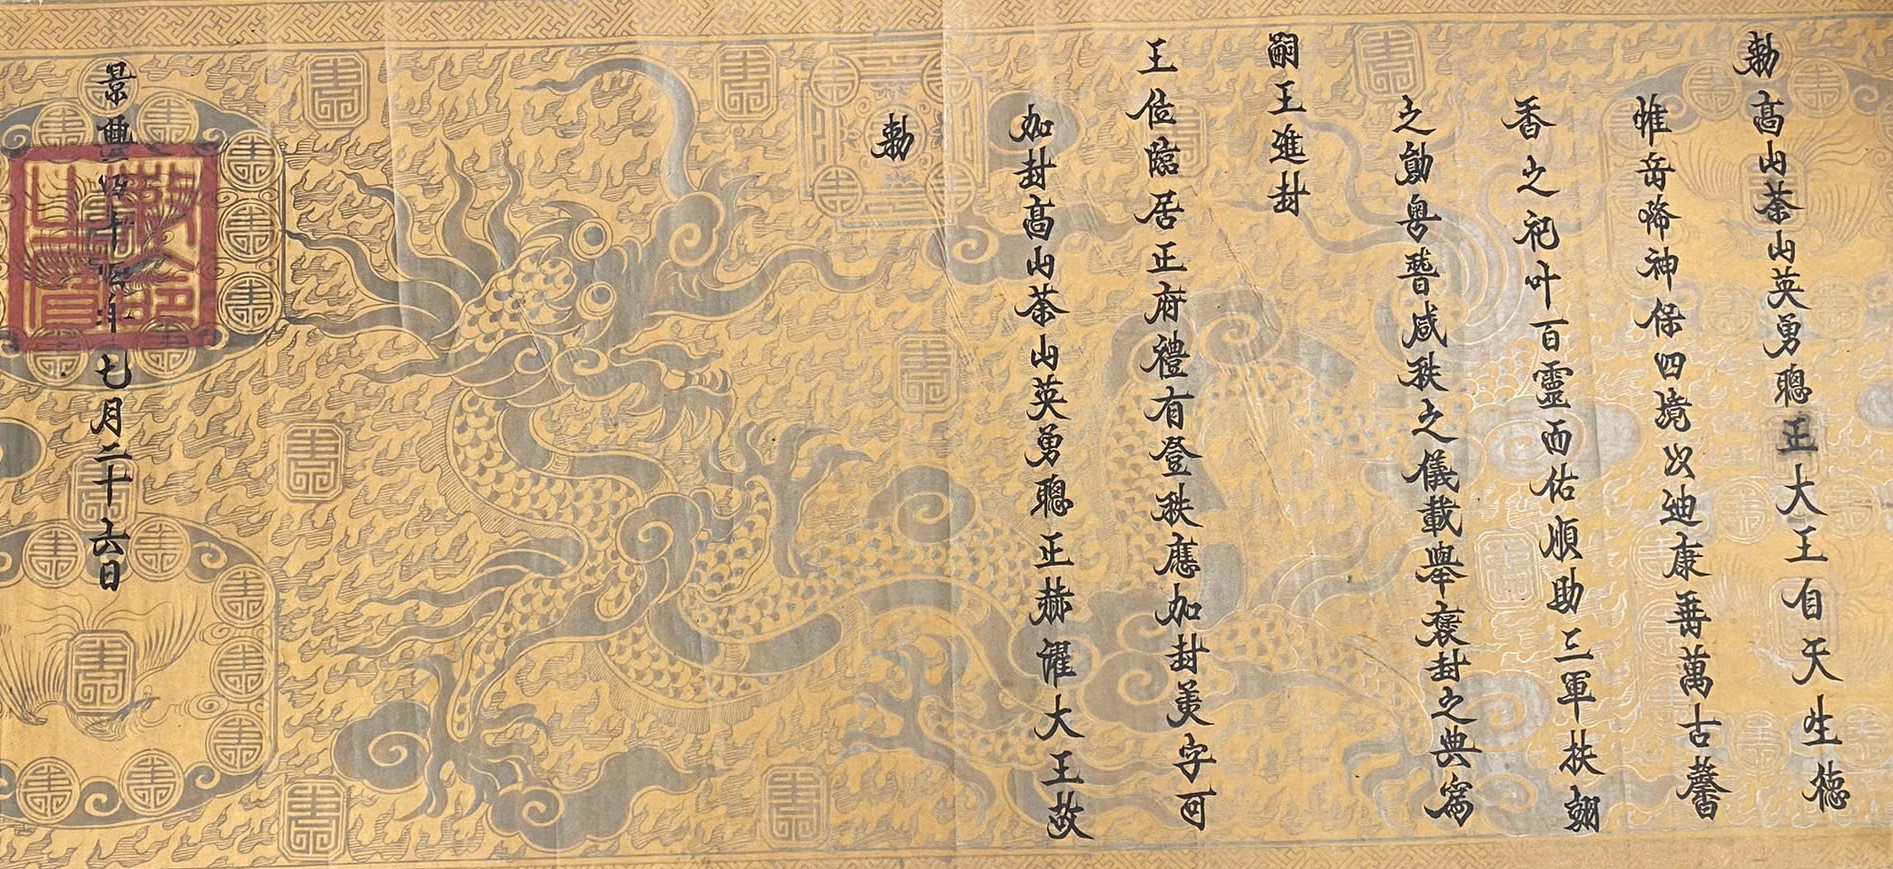 勑高山荼山英勇聰正大王自天生德
惟岳降神保四境以迪康垂萬古馨
香之祀叶百靈而佑順助三軍扶翊
之勳粤瞽咸秩之儀載舉褒封之典爲
嗣王進封
王位臨居正府禮有登秩應加封美字可
加封高山荼山英勇聰正赫濯大王故
勑
景興四十四年七月二十六日
敕命之寶